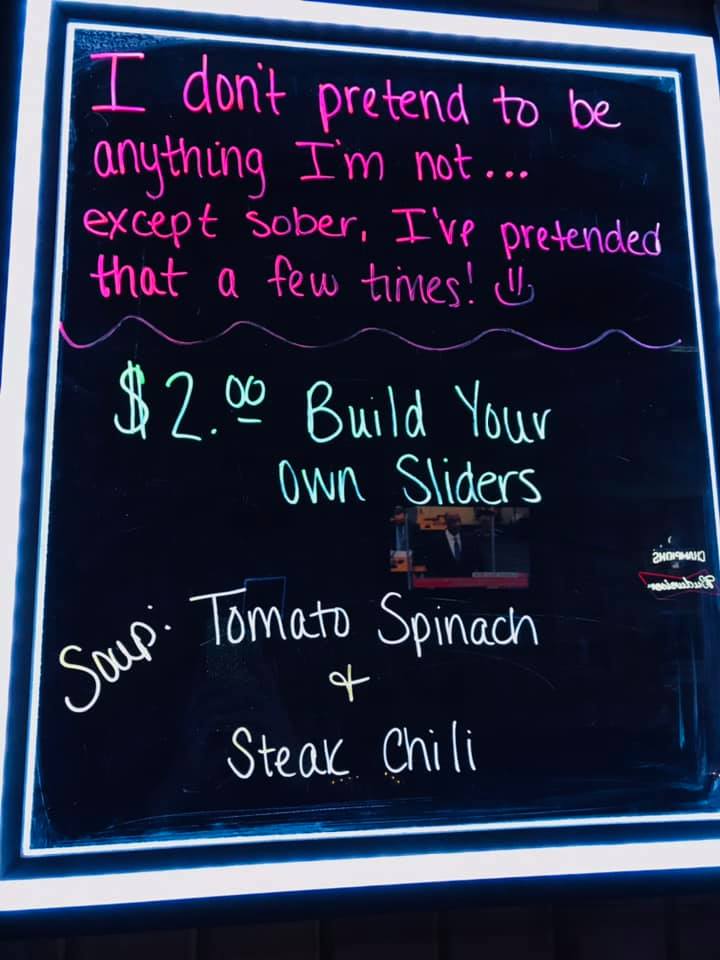 I don't pretend to be
anything I'm not...
except sober, I've pretended
that a few times!
$2.00 Build Your
Own Sliders
Soup: Tomato Spinach
&
Steak Chili
CHAMPIONS
Budweiser